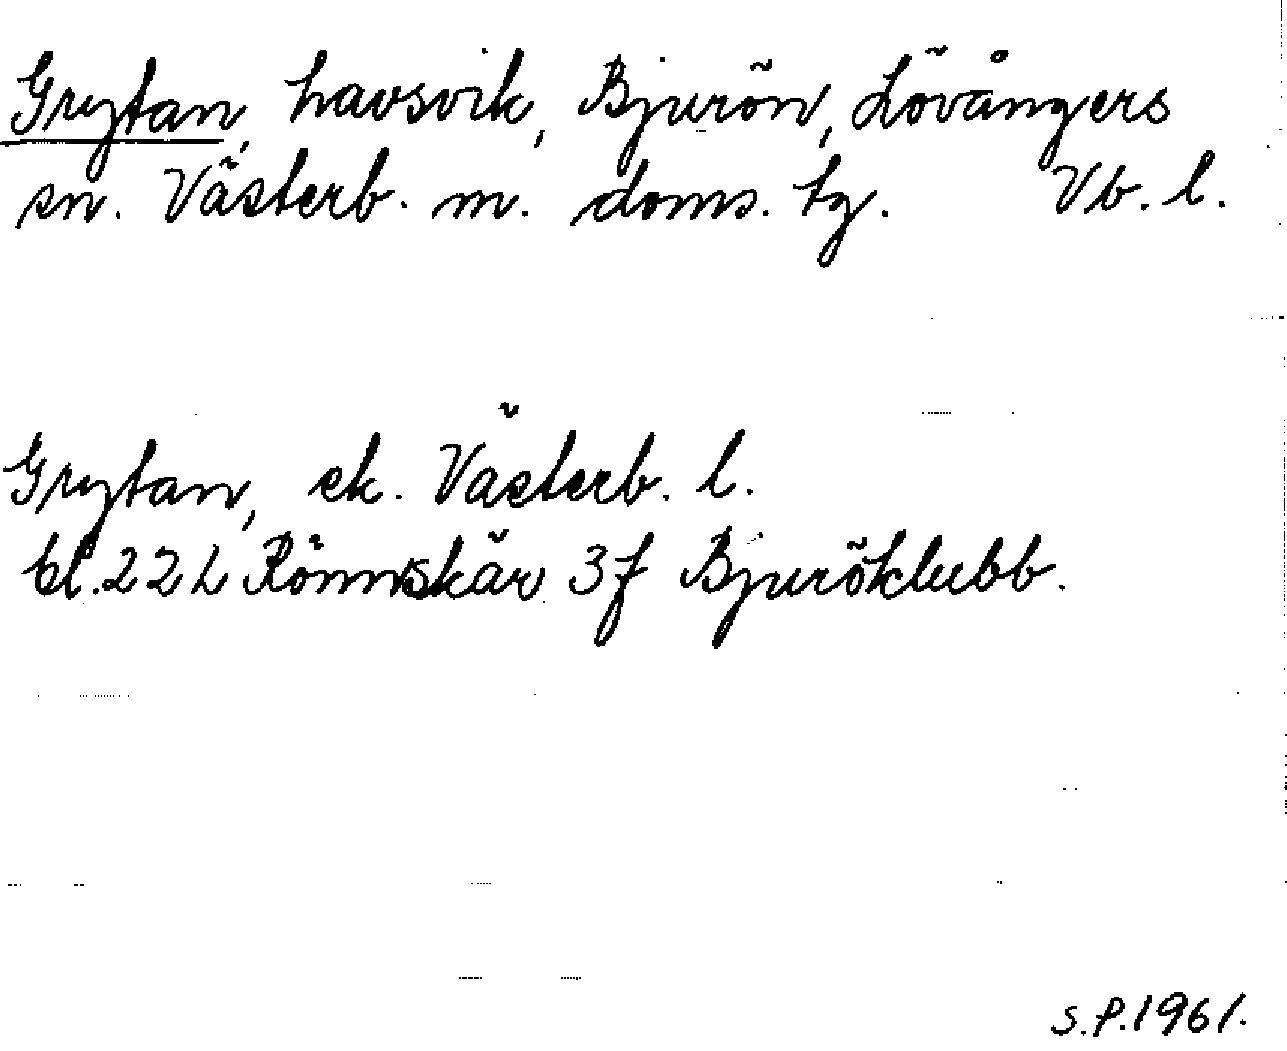 Grytan, havsvik, Bjurön, Lövångers
sn. Västerb. m. doms. tg. Vb. l.
Grytan, ek. Västerb. l.
bl. 22 L Rönnskär 3f Bjuröklubb.
S.P. 1961.